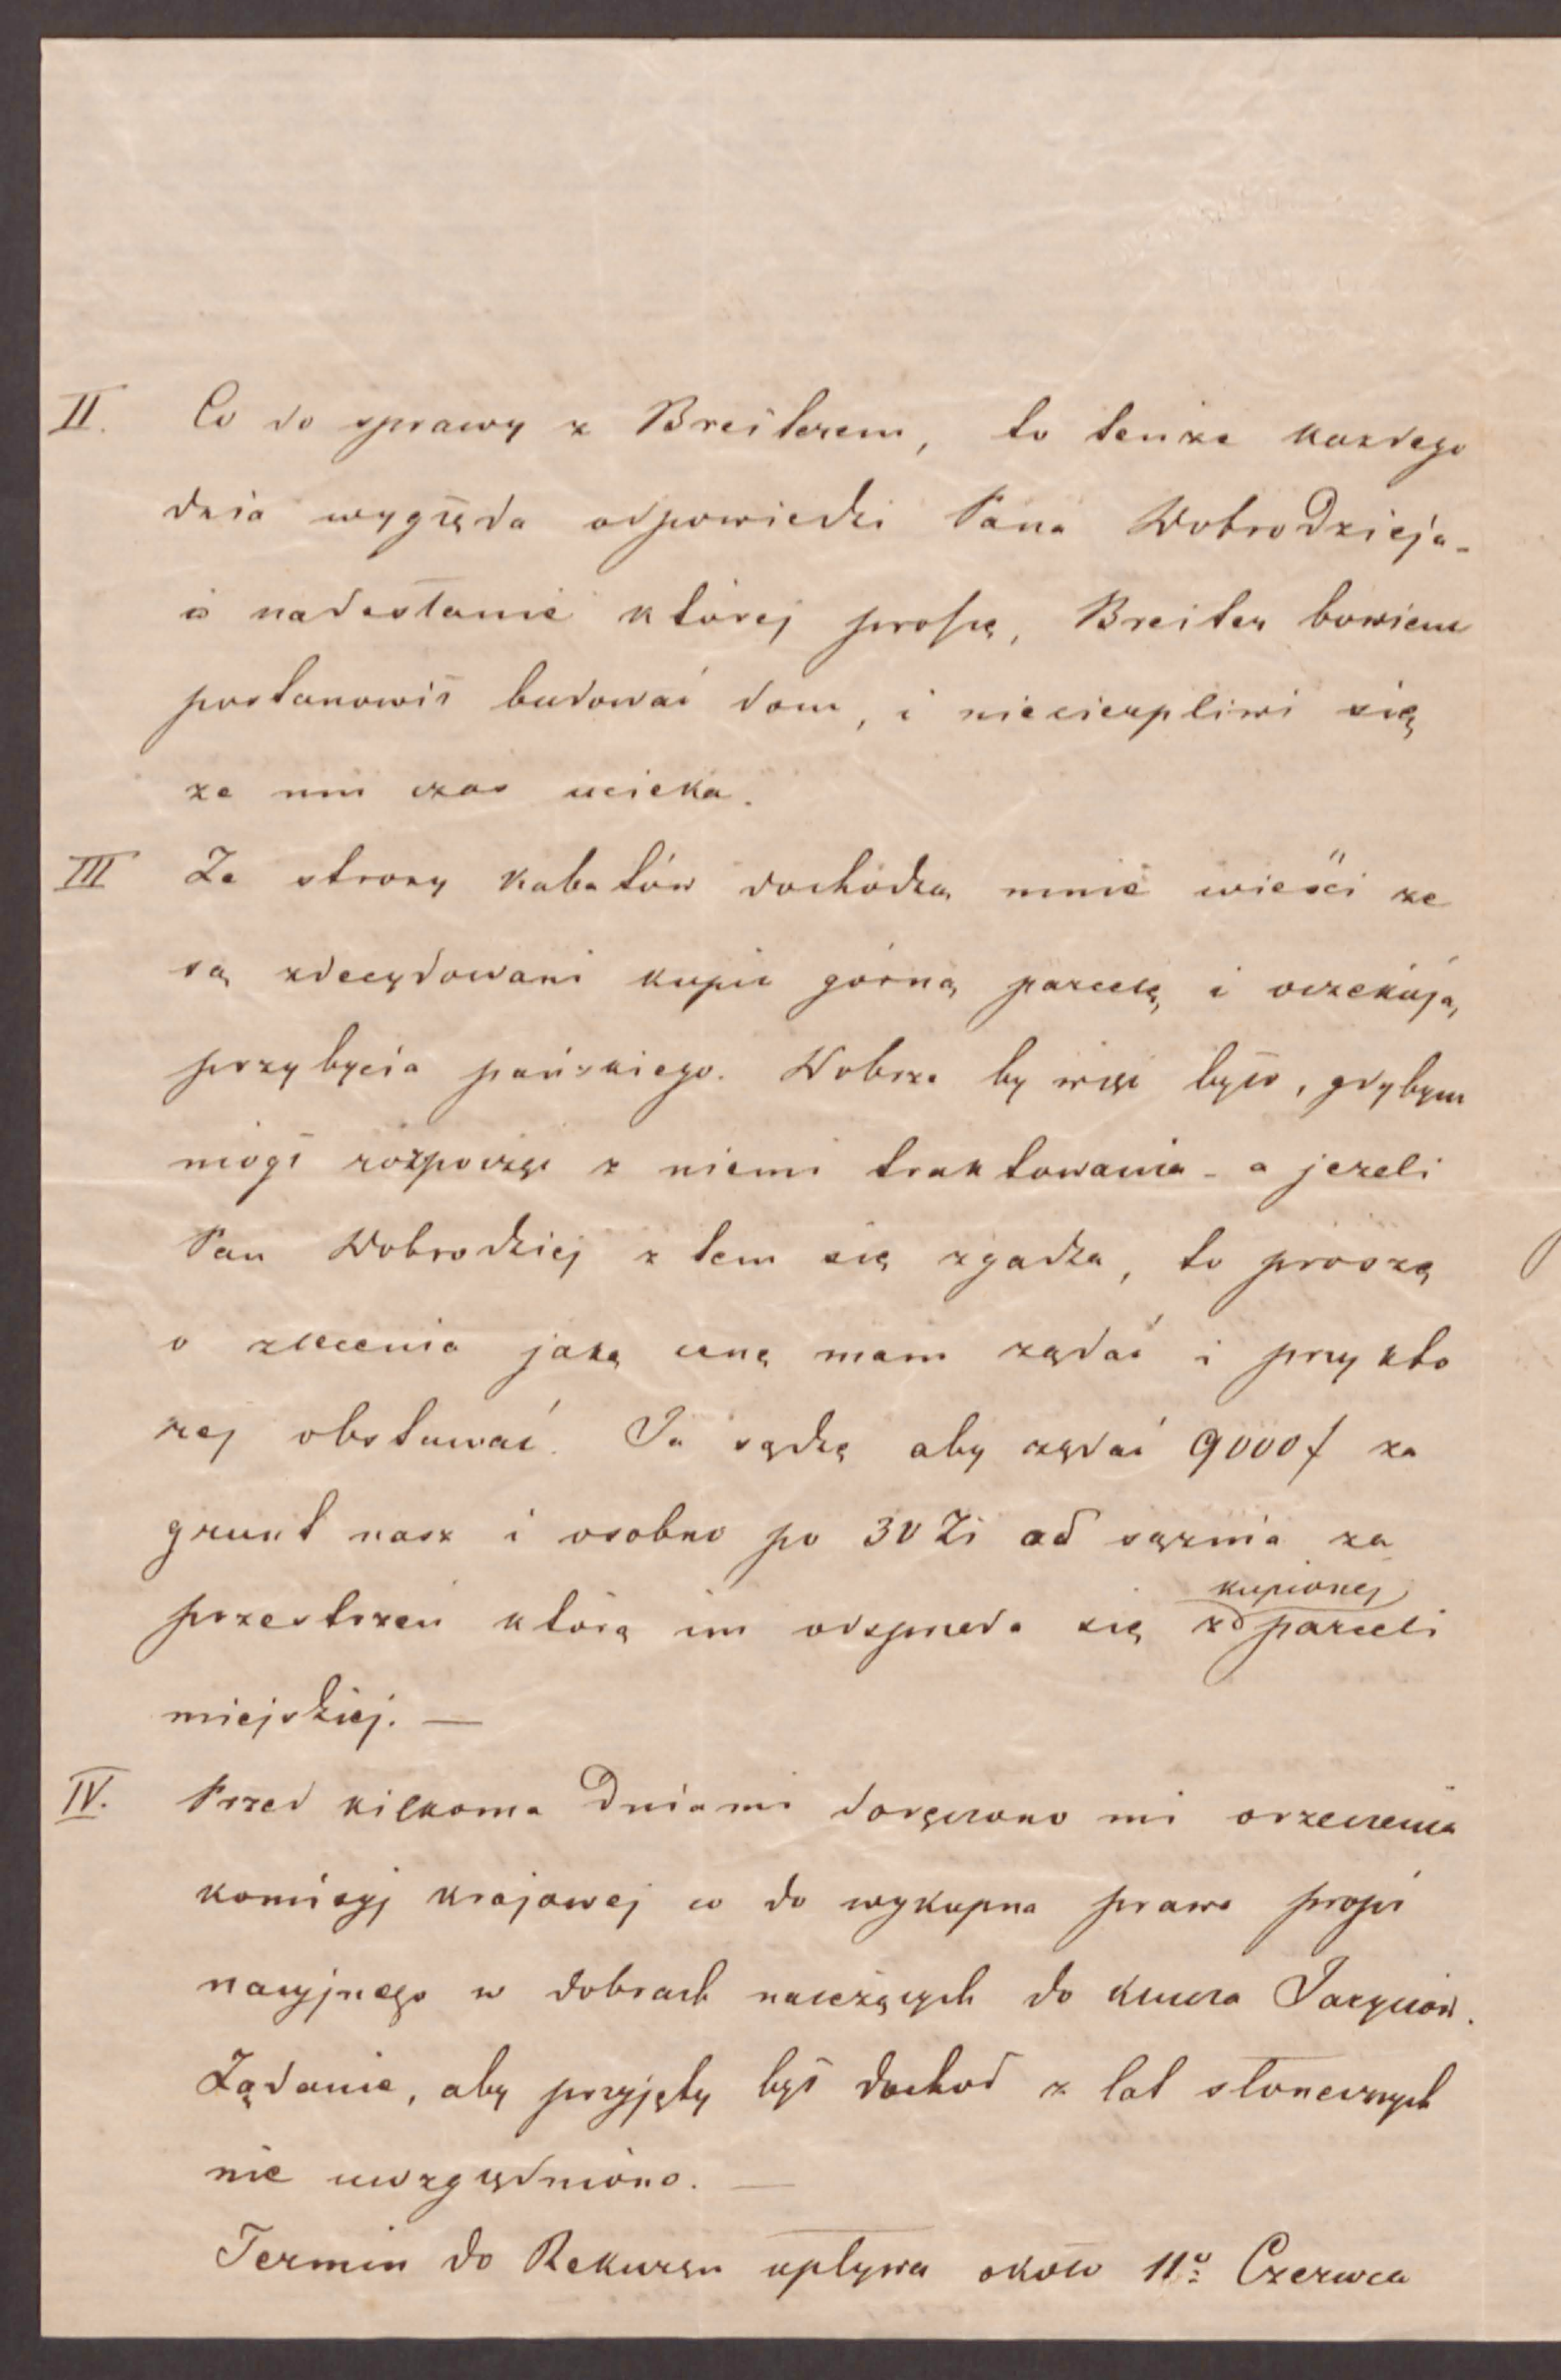 II. Co do sprawy z Breiterem, to tenże każdego
dnia wygląda odpowiedzi Pana Dobrodzieja -
o nadesłanie której proszę, Breiter bowiem
postanowił budować dom, i niecierpliwi się
że mu czas ucieka.
III Ze strony Kabatów dochodzą mnie wieści że
są zdecydowani kupić górną parcelę i oczekują
przybycia pańskiego. Dobrze by więc było, gdybym
mógł rozpocząć z niemi traktowania - a jeżeli
Pan Dobrodziej z tem się zgadza, to proszę
o zlecenia jaką cenę mam żądać i przy któ
rej obstawać. Ja sądzę aby żądać 9000 f za
grunt nasz i osobno po 30 Zł od sążnia za
przestrzeń którą im odsprzeda się kupionej
z parceli
miejskiej. —
IV. Przed kilkoma dniami doręczono mi orzeczenia
komisyj krajowej co do wykupna prawa propi
nacyjnego w dobrach należących do klucza Jaryczów.
Żądanie, aby przyjęty był dochód z lat słonecznych
nie uwzględniono. —
Termin do Rekursu upływa około 11º Czerwca